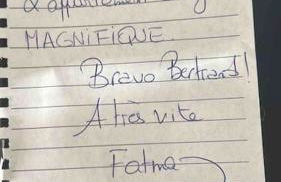 d'appartement
MAGNIFIQUE.
Bravo Bertrand!
A très vite
Fatma